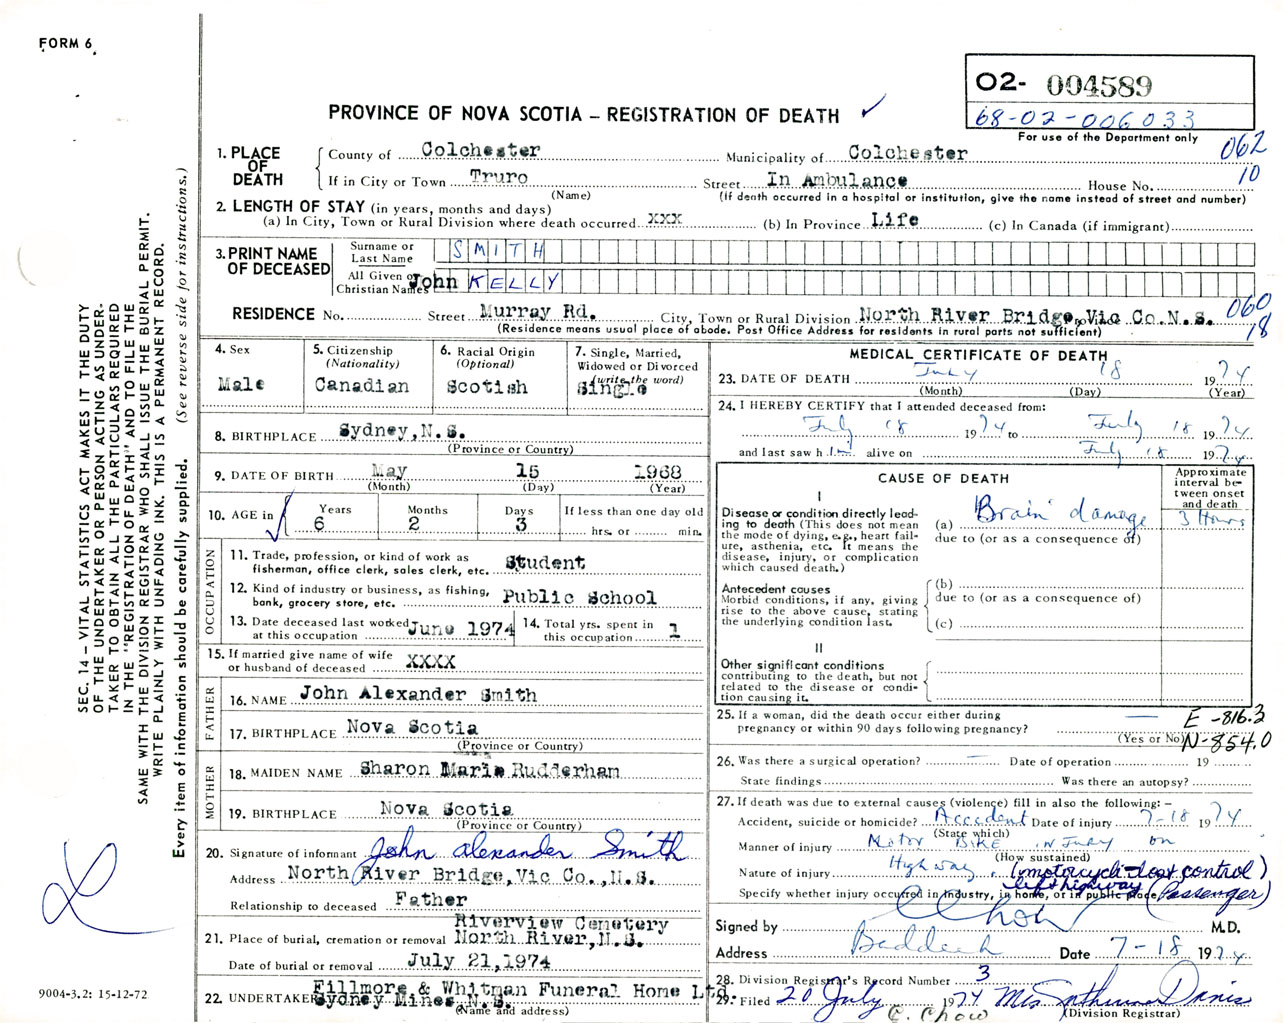 FORM 6
O2- 004589
68-02-006033
For use of the Department only
PROVINCE OF NOVA SCOTIA – REGISTRATION OF DEATH
062
10
1. PLACE OF DEATH
County of Colchester Municipality of Colchester
If in City or Town Truro Street In Ambulance House No.
(Name) (If death occurred in a hospital or institution, give the name instead of street and number)
2. LENGTH OF STAY (in years, months and days)
(a) In City, Town or Rural Division where death occurred XXX (b) In Province Life (c) In Canada (if immigrant)
3. PRINT NAME OF DECEASED
Surname or Last Name SMITH
All Given or Christian Names John KELLY
060
18
RESIDENCE No. Street Murray Rd. City, Town or Rural Division North River Bridge, Vic Co. N.S.
(Residence means usual place of abode. Post Office Address for residents in rural parts not sufficient)
4. Sex
Male
5. Citizenship
(Nationality)
Canadian
6. Racial Origin
(Optional)
Scotish
7. Single, Married, Widowed or Divorced
(write the word)
Single
8. BIRTHPLACE Sydney, N.S.
(Province or Country)
9. DATE OF BIRTH May 15 1968
(Month) (Day) (Year)
10. AGE in
Years Months Days If less than one day old
6 2 3 hrs. or min.
OCCUPATION
11. Trade, profession, or kind of work as
fisherman, office clerk, sales clerk, etc. Student
12. Kind of industry or business, as fishing,
bank, grocery store, etc. Public School
13. Date deceased last worked
at this occupation June 1974
14. Total yrs. spent in
this occupation 1
15. If married give name of wife
or husband of deceased XXXX
FATHER
16. NAME John Alexander Smith
17. BIRTHPLACE Nova Scotia
(Province or Country)
MOTHER
18. MAIDEN NAME Sharon Marie Rudderham
19. BIRTHPLACE Nova Scotia
(Province or Country)
20. Signature of informant John Alexander Smith
Address North River Bridge, Vic Co., N.S.
Relationship to deceased Father
21. Place of burial, cremation or removal Riverview Cemetery
North River, N.S.
Date of burial or removal July 21, 1974
22. UNDERTAKER Fillmore & Whitman Funeral Home Ltd.
Sydney Mines, N.S.
(Name and address)
MEDICAL CERTIFICATE OF DEATH
23. DATE OF DEATH July 18 1974
(Month) (Day) (Year)
24. I HEREBY CERTIFY that I attended deceased from:
July 18 1974 to July 18 1974
and last saw him alive on July 18 1974
CAUSE OF DEATH
Approximate interval between onset and death
I
Disease or condition directly leading to death (This does not mean the mode of dying, e.g., heart failure, asthenia, etc. It means the disease, injury, or complication which caused death.)
(a) Brain damage 3 Hours
due to (or as a consequence of)
Antecedent causes
Morbid conditions, if any, giving rise to the above cause, stating the underlying condition last.
(b)
due to (or as a consequence of)
(c)
II
Other significant conditions contributing to the death, but not related to the disease or condition causing it.
25. If a woman, did the death occur either during
pregnancy or within 90 days following pregnancy?
(Yes or No)
E -816.3
N-854.0
26. Was there a surgical operation? Date of operation 19
State findings Was there an autopsy?
27. If death was due to external causes (violence) fill in also the following: –
Accident, suicide or homicide? Accident Date of injury 7-18 1974
(State which)
Manner of injury Motor Bike injury on
(How sustained)
Nature of injury Highway. (motorcycle-lost control)
left highway (Passenger)
Specify whether injury occurred in Industry, in home, or in public place
Signed by C Chow M.D.
Address Baddeck Date 7-18 1974
28. Division Registrar's Record Number 3
29. Filed 20 July 1974 Mrs Davis
C. Chow (Division Registrar)
SEC. 14 – VITAL STATISTICS ACT MAKES IT THE DUTY
OF THE UNDERTAKER OR PERSON ACTING AS UNDER-
TAKER TO OBTAIN ALL THE PARTICULARS REQUIRED
IN THE "REGISTRATION OF DEATH" AND TO FILE THE
SAME WITH THE DIVISION REGISTRAR WHO SHALL ISSUE THE BURIAL PERMIT.
WRITE PLAINLY WITH UNFADING INK. THIS IS A PERMANENT RECORD.
Every item of information should be carefully supplied. (See reverse side for instructions.)
9004-3.2: 15-12-72